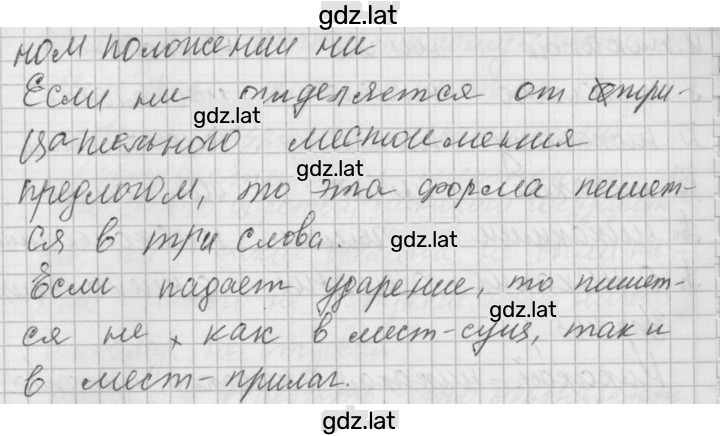 gdz.lat
ном положении ни
Если ни отделяется от отри-
gdz.lat
цательного местоимения
gdz.lat
предлогом, то эта форма пишет-
ся в три слова. gdz.lat
Если падает ударение, то пишет-
gdz.lat
ся не, как в мест-сущ, так и
в мест-прилаг.
gdz.lat